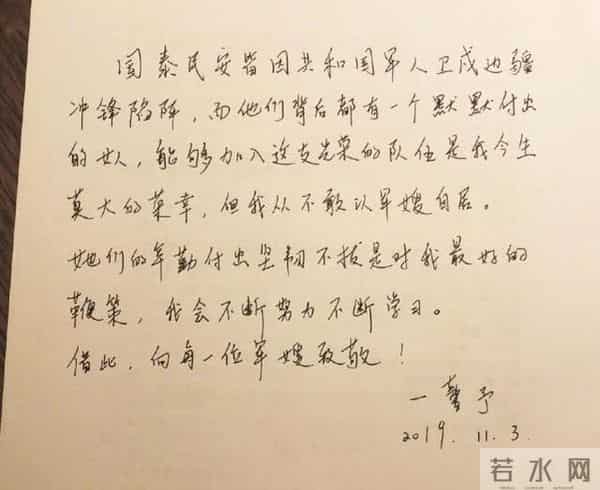 国泰民安皆因共和国军人卫戍边疆
冲锋陷阵，而他们背后都有一个默默付出
的女人，能够加入这支光荣的队伍是我今生
莫大的荣幸，但我从不敢以军嫂自居。
她们的辛勤付出坚韧不拔是对我最好的
鞭策，我会不断努力不断学习。
借此，向每一位军嫂致敬！
一馨予
2019.11.3.
若水网